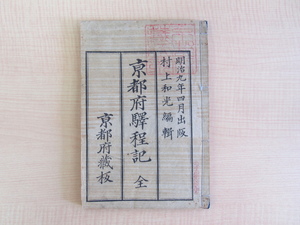 明治九年四月出版
村上和光編輯
京都府驛程記 全
京都府藏板